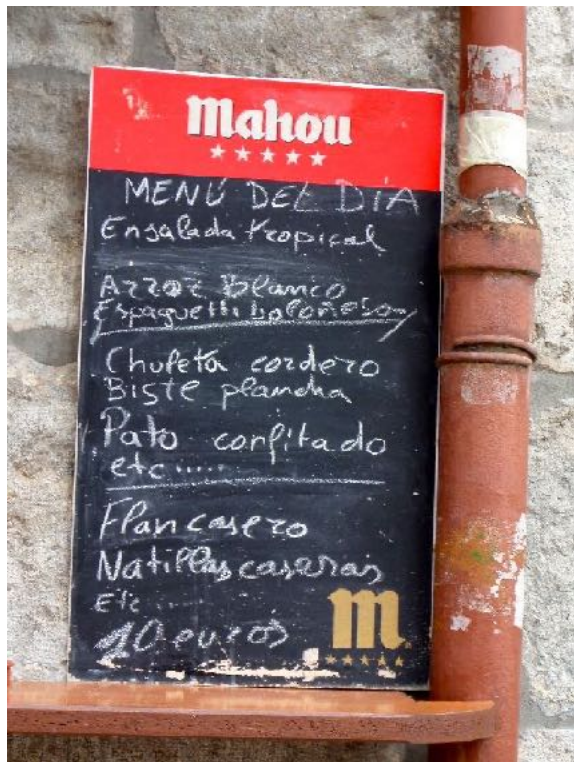 Mahou
MENÚ DEL DÍA
Ensalada tropical
Arroz Blanco
Espaguetti boloñesa
Chuleta cordero
Biste plancha
Pato confitado
etc.....
Flan casero
Natillas caseras
Etc....
10 euros
m